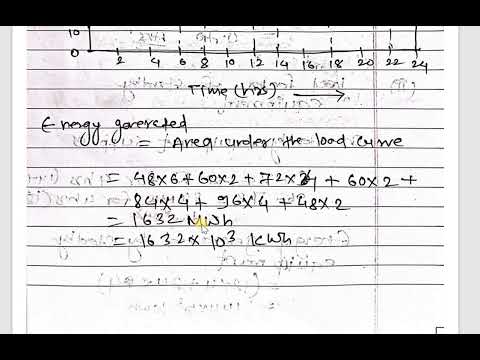 10
0
2 4 6 8 10 12 14 16 18 20 22 24
Time (hrs) →
Energy generated
= Area under the load curve
= 48×6 + 60×2 + 72×4 + 60×2 +
84×4 + 96×4 + 48×2
= 1632 MWh
= 1632×10³ kWh